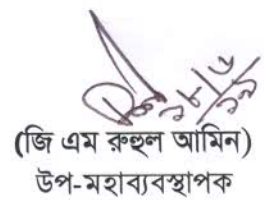 (জি এম রুহুল আমিন)
উপ-মহাব্যবস্থাপক